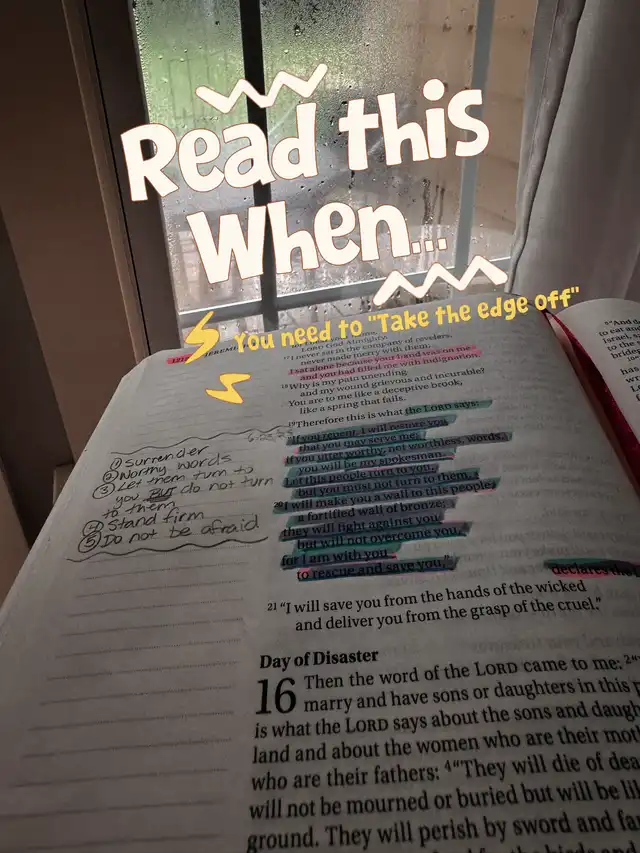 Read this
When...
You need to "Take the edge off"
LORD God Almighty.
17 I never sat in the company of revelers,
never made merry with them;
I sat alone because your hand was on me
and you had filled me with indignation.
18 Why is my pain unending
and my wound grievous and incurable?
You are to me like a deceptive brook,
like a spring that fails.
19 Therefore this is what the LORD says:
"If you repent, I will restore you
that you may serve me;
if you utter worthy, not worthless, words,
you will be my spokesman.
Let this people turn to you,
but you must not turn to them.
20 I will make you a wall to this people,
a fortified wall of bronze;
they will fight against you
but will not overcome you,
for I am with you
to rescue and save you,"
declares the
21 "I will save you from the hands of the wicked
and deliver you from the grasp of the cruel."
① Surrender
② Worthy words
③ Let them turn to
you BUT do not turn
to them
④ Stand firm
⑤ Do not be afraid
Day of Disaster
16 Then the word of the LORD came to me: 2 "
marry and have sons or daughters in this
is what the LORD says about the sons and daugh
land and about the women who are their mot
who are their fathers: 4 "They will die of dea
will not be mourned or buried but will be lik
ground. They will perish by sword and fa